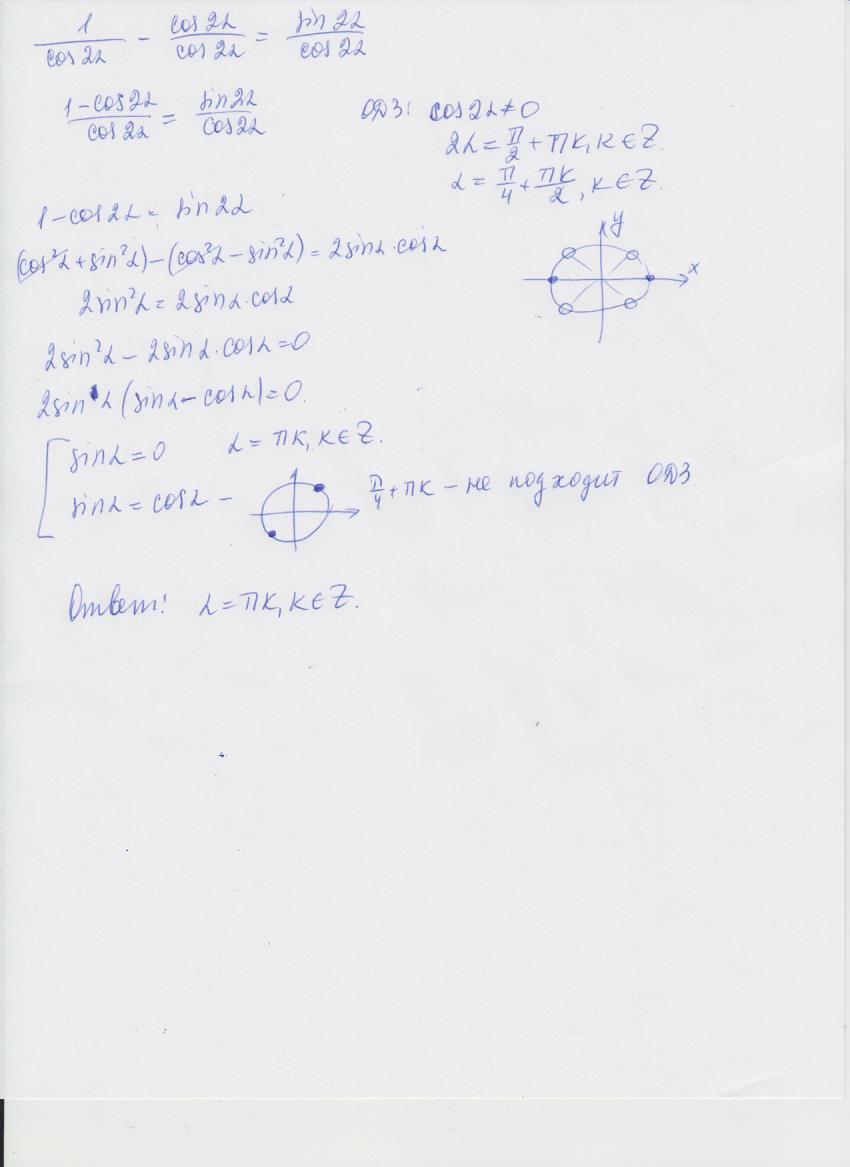 1/cos2α - cos2α/cos2α = sin2α/cos2α
(1-cos2α)/cos2α = sin2α/cos2α ОДЗ: cos2α≠0
2α = π/2 + πк, к∈Z.
α = π/4 + πк/2, к∈Z.
1-cos2α = sin2α
y
x
(cos²α + sin²α) - (cos²α - sin²α) = 2sinα·cosα
2sin²α = 2sinα·cosα
2sin²α - 2sinα·cosα = 0
2sinα (sinα - cosα) = 0.
[ sinα = 0 α = πк, к∈Z.
sinα = cosα - π/4 + πк - не подходит ОДЗ.
Ответ: α = πк, к∈Z.